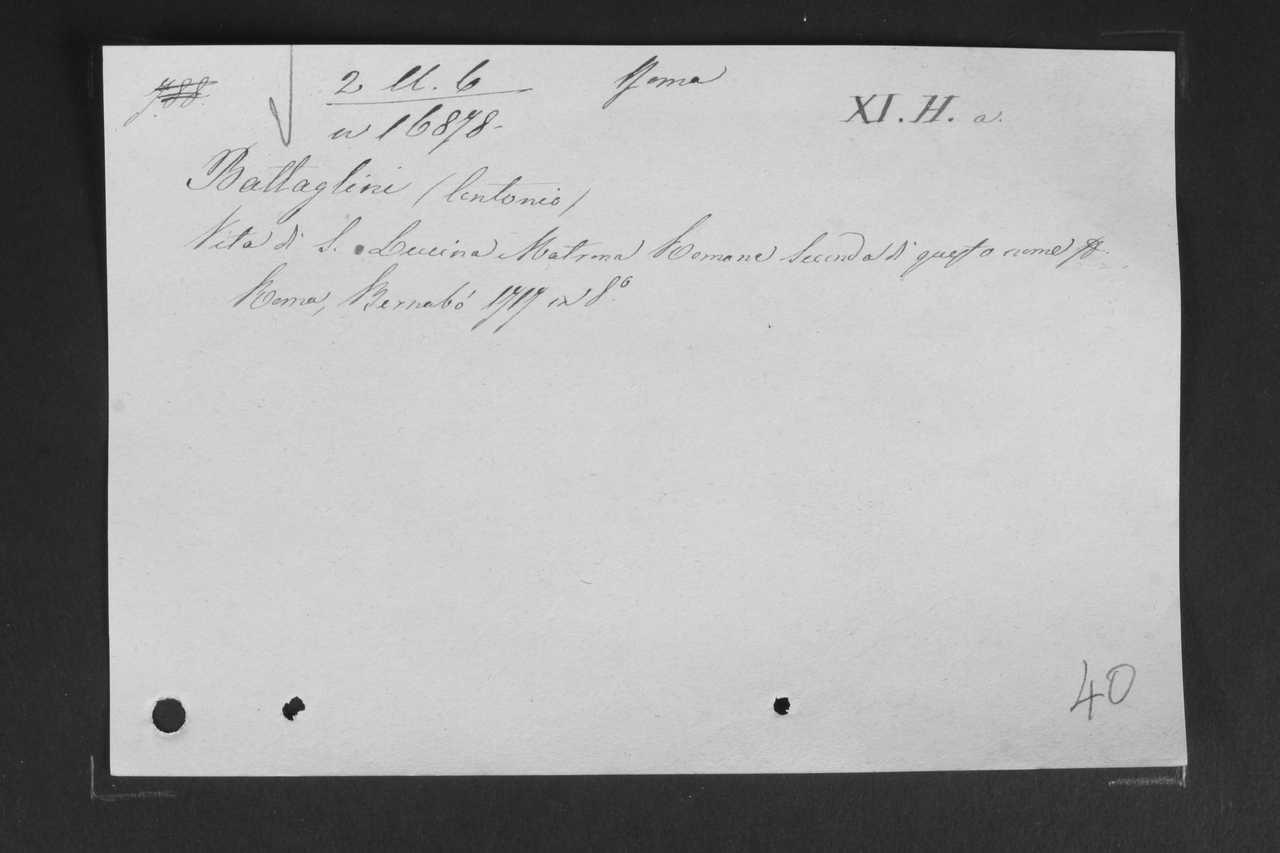 788
2 U. 6
n 16878-
Roma
XI. H. a.
Battaglini (Antonio)
Vita di S. Lucina Matrona Romana Seconda di questo nome
Roma, Bernabó 1717 in 8.º
40